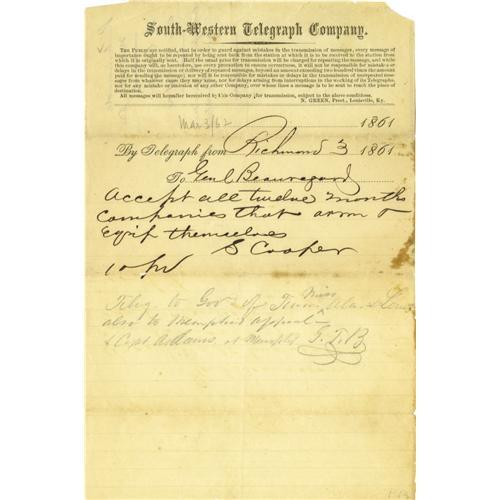 South-Western Telegraph Company.
THE PUBLIC are notified, that in order to guard against mistakes in the transmission of messages, every message of
importance ought to be repeated by being sent back from the station at which it is to be received to the station from
which it is originally sent. Half the usual price for transmission will be charged for repeating the message, and while
this company will, as heretofore, use every precaution to ensure correctness, it will not be responsible for mistakes or
delays in the transmission or delivery of repeated messages, beyond an amount exceeding two hundred times the amount
paid for sending the message; nor will it be responsible for mistakes or delays in the transmission of unrepeated mes-
sages from whatever causes they may arise, nor for delays arising from interruptions in the working of its Telegraphs,
nor for any mistake or omission of any other Company, over whose lines a message is to be sent to reach the place of
destination.
All messages will hereafter be received by this Company for transmission, subject to the above conditions.
N. GREEN, Prest., Louisville, Ky.
Mar 3/62 1861
By Telegraph from Richmond 3 1861
To Genl Beauregard
Accept all twelve months
companies that arm &
Equip themselves
S Cooper
Teleg. to Gov of Tenn Miss Ala & Lou
also to Memphis Appeal
& Capt Adams at Memphis G. T. B